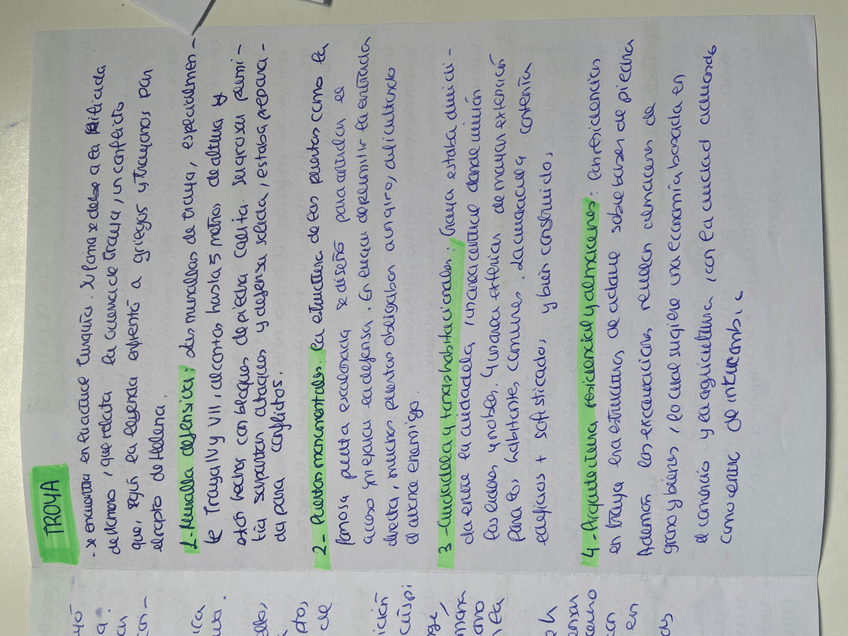 TROYA
- se encuentra en la actual Turquía. Su fama se debe a la Ilíada
de Homero, que relata la Guerra de Troya, un conflicto
que, según la leyenda enfrentó a griegos y troyanos por
el rapto de Helena.
1-Muralla defensiva: Las murallas de Troya, especialmen-
te Troya IV y VII, alcontas hasta 5 metros de altura y
están hechas con bloques de piedra caliza. Su grosor permi-
tía soportar ataques y defensa solida, estaba prepara-
da para conflictos.
2- Puertas monumentales: la estructura de las puertas como la
famosa puerta escalonada se diseñó para articular el
acceso y mejorar la defensa. En lugar de permitir la entrada
directa, muchas puertas obligaban a un giro, dificultando
el avance enemigo.
3-Ciudadela y zonas habitacionales: Troya estaba dividi-
da entre la ciudadela, un área central donde vivían
los líderes y nobles. Y un área exterior de mayor extensión
para los habitantes comunes. La ciudadela contenía
edificios + sofisticados y bien construidos.
4-Arquitectura residencial y almacenes: Las residencias
en Troya eran estructuras de adobe sobre bases de piedra
Además las excavaciones revelan almacenes de
grano y bienes, lo cual sugiere una economía basada en
el comercio y la agricultura, con la ciudad actuando
como enlace de intercambio.